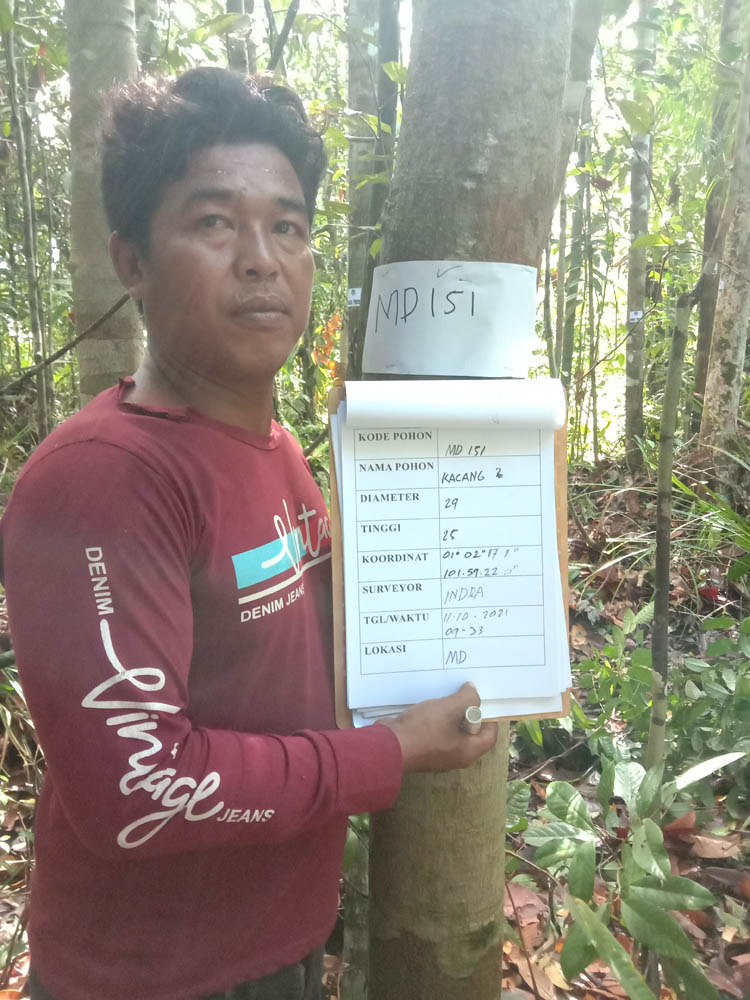 MD 151
KODE POHON MD 151
NAMA POHON KACANG 2
DIAMETER 29
TINGGI 25
KOORDINAT 01° 02" 17 1"
101.59.22 0"
SURVEYOR INDRA
TGL/WAKTU 11.10.2021
09-33
LOKASI MD
Vintage
DENIM JEANS
DENIM
Vintage
JEANS